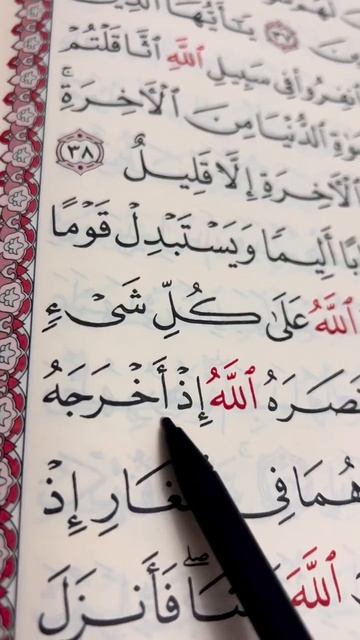 يَـٰٓأَيُّهَا ٱلَّذِينَ
ٱنفِرُوا۟ فِى سَبِيلِ ٱللَّهِ ٱثَّاقَلْتُمْ
ٱلدُّنْيَا مِنَ ٱلْـَٔاخِرَةِ ۚ
ٱلْـَٔاخِرَةِ إِلَّا قَلِيلٌ ٣٨
أَلِيمًا وَيَسْتَبْدِلْ قَوْمًا
ٱللَّهُ عَلَىٰ كُلِّ شَىْءٍ
نَصَرَهُ ٱللَّهُ إِذْ أَخْرَجَهُ
هُمَا فِى ٱلْغَارِ إِذْ
ٱللَّهَ فَأَنزَلَ